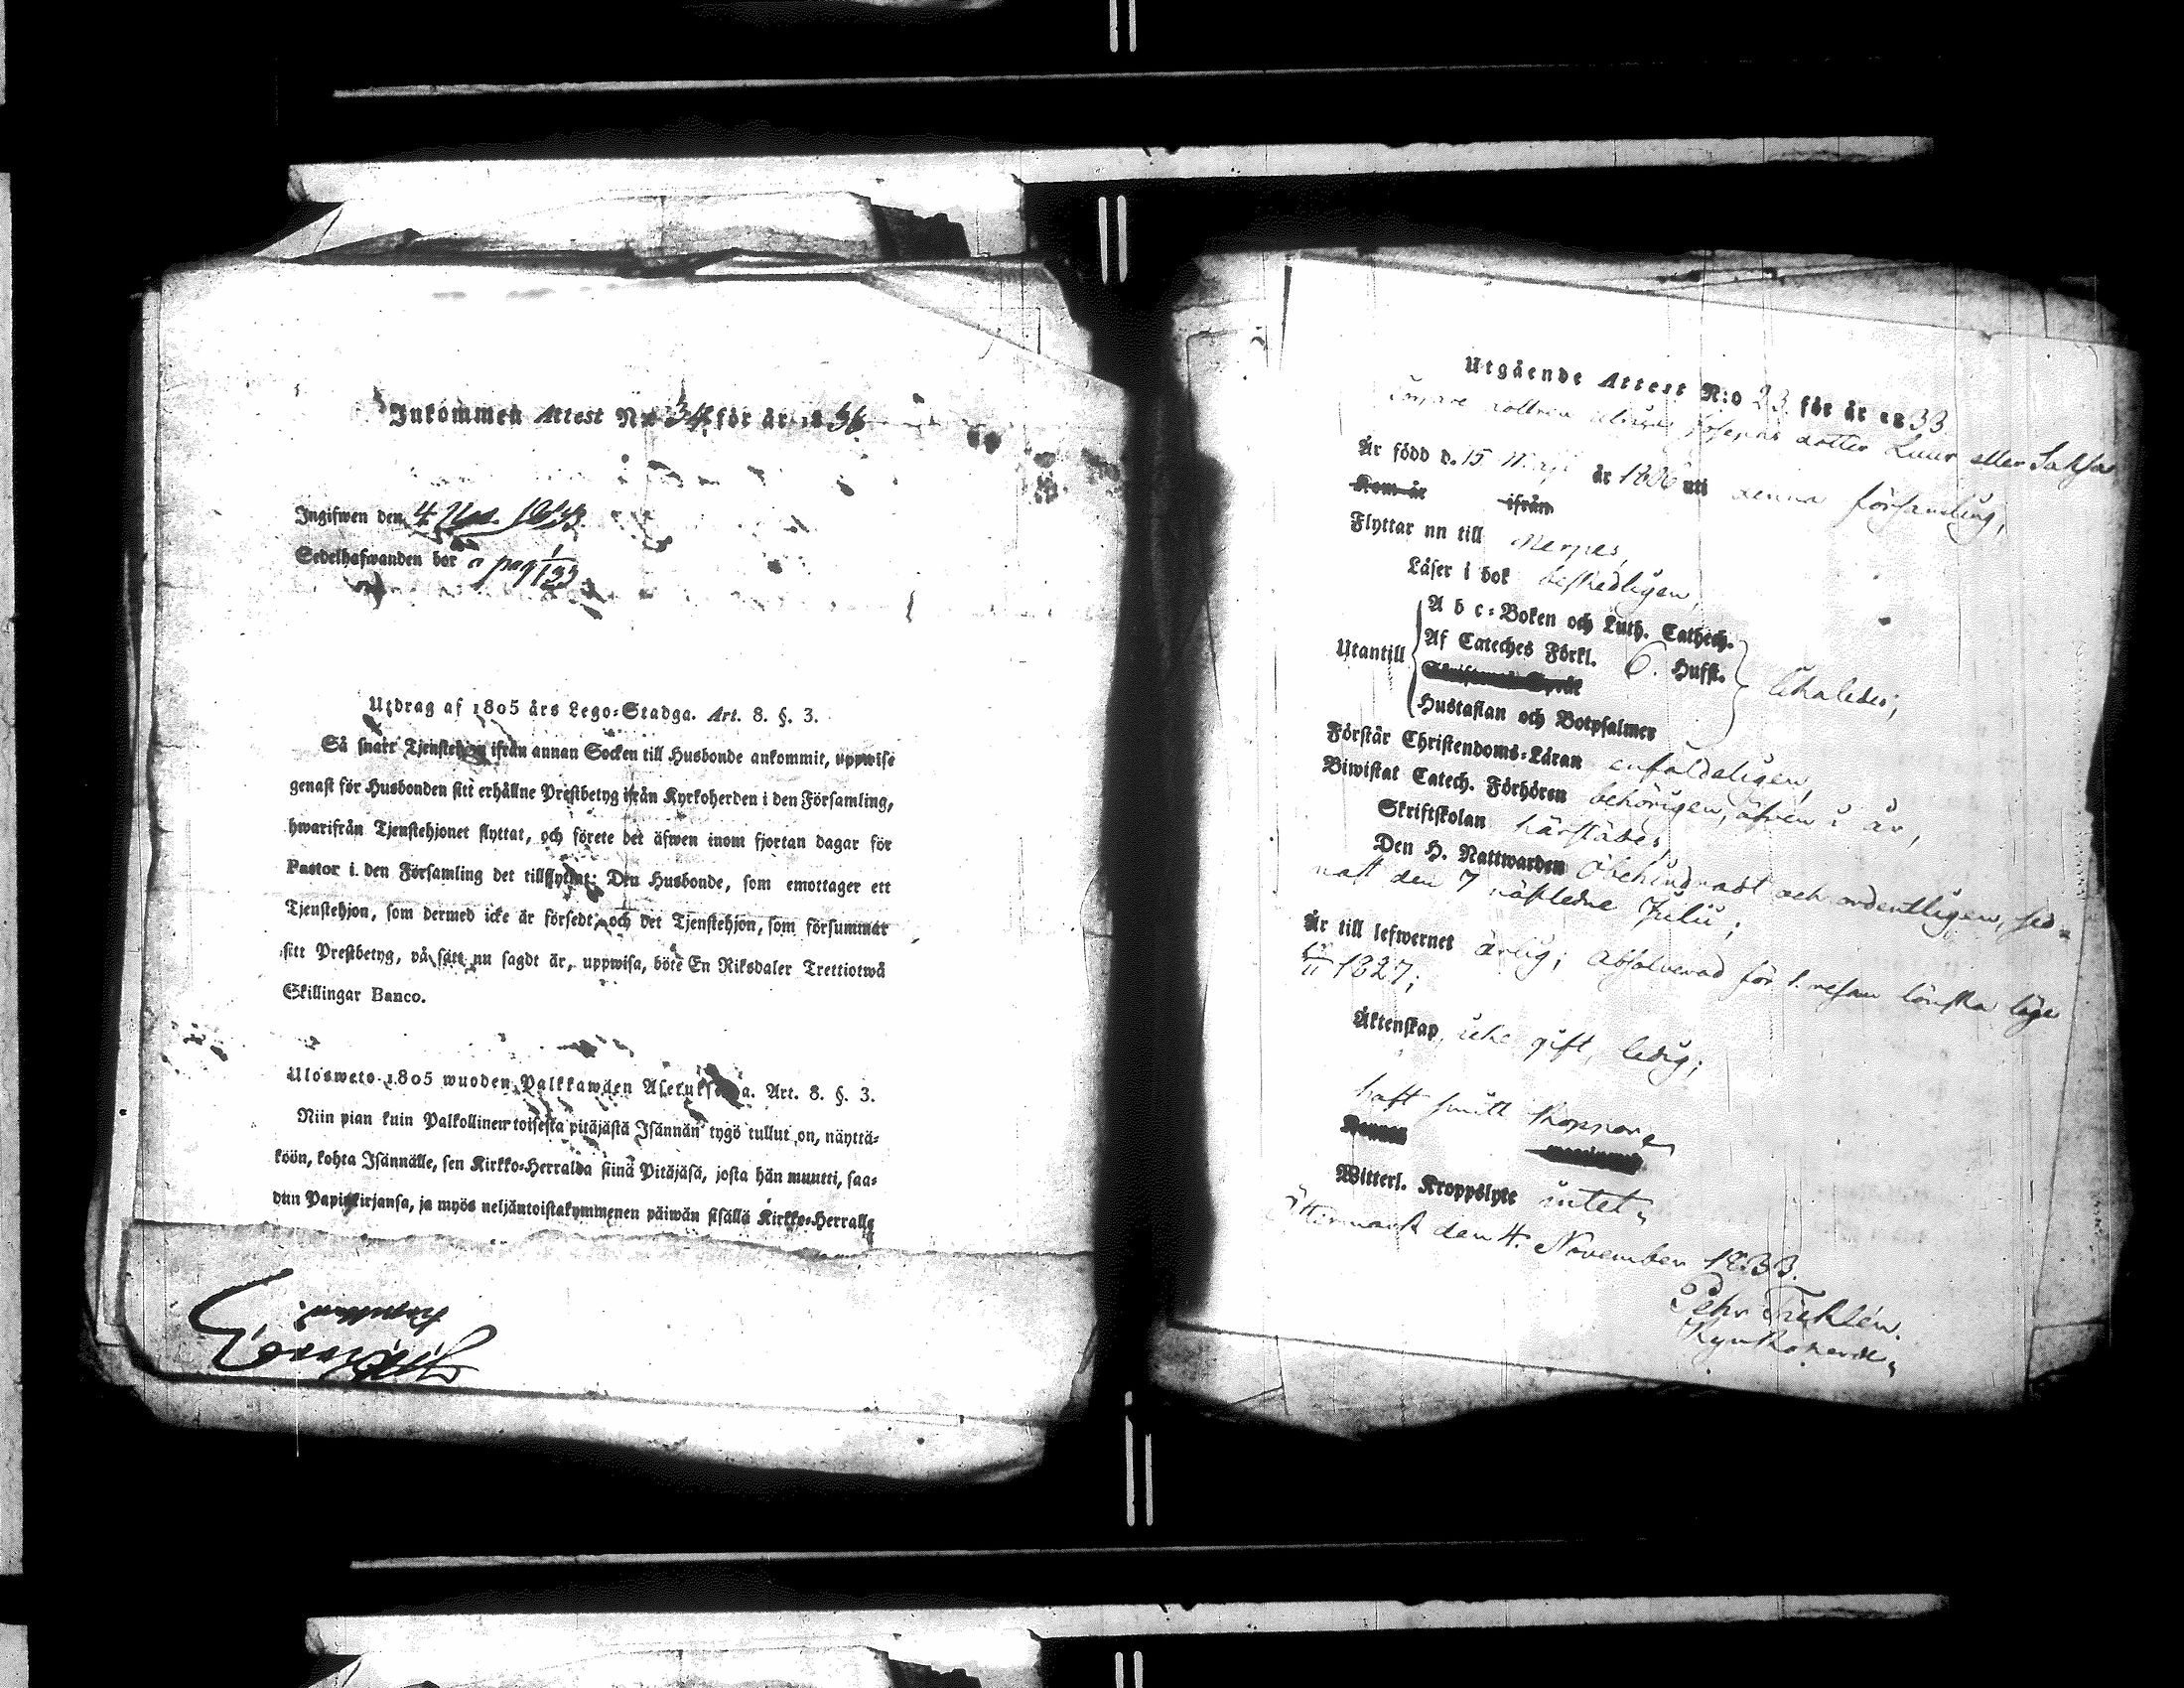 Inkommen Attest N:o 34 för år 18
Ingifwen den 4 Nov. 1833
Sedelhafwanden bor å pag 133
Utdrag af 1805 års Lego-Stadga. Art. 8. §. 3.
Så snart Tjenstehjon ifrån annan Socken till Husbonde ankommit, uppwise
genast för Husbonden sitt erhållne Prestbetyg ifrån Kyrkoherden i den Församling,
hwarifrån Tjenstehjonet flyttat, och förete det äfwen inom fjortan dagar för
Pastor i den Församling det tillflyttat: Den Husbonde, som emottager ett
Tjenstehjon, som dermed icke är försedt, och det Tjenstehjon, som försummar
sitt Prestbetyg, på sätt nu sagdt är, uppwisa, böte En Riksdaler Trettiotwå
Skillingar Banco.
Ulosweto 1805 wuoden Palkkawäen Asetuksesta. Art. 8. §. 3.
Niin pian kuin Palkollinen toisesta pitäjästä Isännän tygö tullut on, näyttä-
köön, kohta Isännälle, sen Kirkko-Herralda siinä Pitäjäsä, josta hän muutti, saa-
dun Papinkirjansa, ja myös neljäntoistakymmenen päiwän sisällä Kirkko-Herralle
Utgående Attest N:o 23 för år 1833
dottren Josephs dotter Luur eller
Är född d. 15 Maji år 1806 uti denna församling,
Kom år ifrån
Flyttar nu till Nerpes,
Läser i bok beskedligen,
Utantill
A b c-Boken och Luth. Cathech.
Af Cateches Förkl. 6. Hufst.
Hustaflan och Botpsalmer
likaledes;
Förstår Christendoms-Läran enfaldeligen,
Biwistat Catech. Förhören behörigen, äfven i år,
Skriftskolan härstädes,
Den H. Nattwarden obehindradt och ordentligen, sed-
nast den 7 näftledne Julii;
Är till lefwernet ärlig; absolverad för 1. resan lönska läge
1827;
Äktenskap icke gift, ledig;
haft smitt koppor,
Kännes
Witterl. Kroppslyte intet,
Öttermark den 4. November 1833.
Pehr
Kyrkoherde,